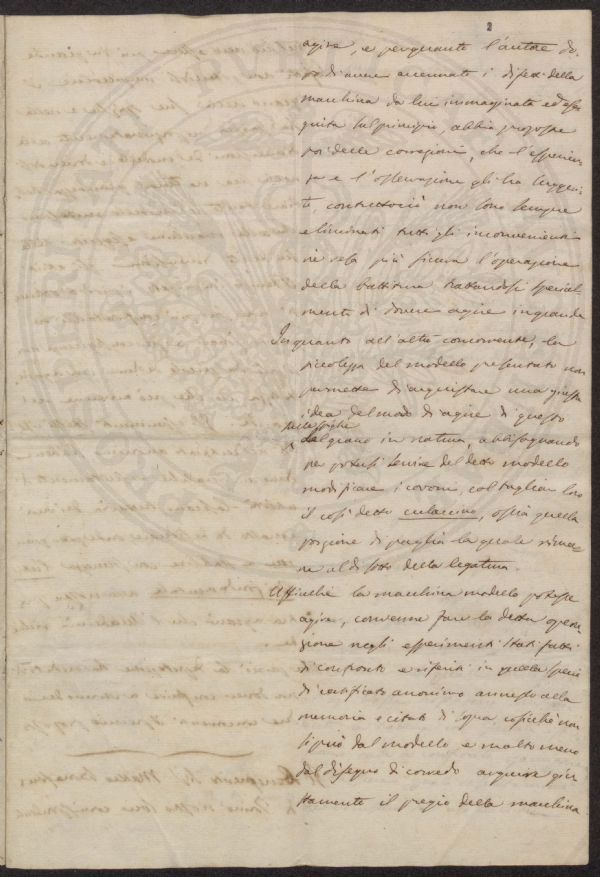 2
agire, e penquante l'autore do-
po di avere accennati i difetti della
macchina da lui immaginata ed ese-
guita sul principio, abbia proposte
poi delle correzioni, che l'esperien-
za e l'osservazione gli ha suggeri-
te, contuttociò non sono sempre
eliminati tutti gli inconvenienti
nè resa più sicura l'operazione
della battitura trattandosi special-
mente di dovere agire in grande
In quanto all'altro concorrente, la
piccolezza del modello presentato non
permette di acquistare una giusta
idea del modo di agire di questo
nelle spighe
del grano in natura, abbisognando
per potersi servire del detto modello
modificare i covoni, col tagliar loro
il così detto culaccino, ossia quella
porzione di paglia la quale rima-
ne al di sotto della legatura.
Affinchè la macchina modello potesse
agire, convenne fare la detta opera-
zione negli esperimenti stati fatti
di confronto e riferiti in quella specie
di certificato anonimo annesso alla
memoria e citato di sopra cosicchè non
si può dal modello e molto meno
dal disegno di corredo acquisire giu-
stamente il pregio della macchina